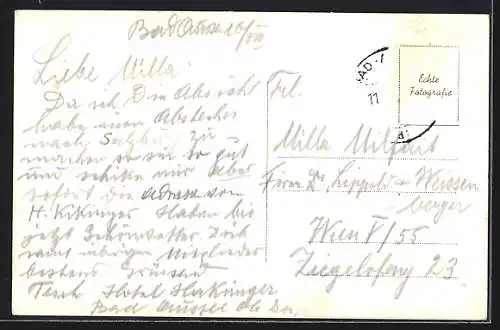 Bad Aussee 16/VIII
Liebe Milla!
Da ich Die Absicht
habe einen Abstecher
nach Salzburg zu
machen so sei so gut
und schicke mir aber
sofort die Adresse von
H. Kikinger Hatan bis
jetzt Schönwetter. Dich
samt übrigen Mitglieder
bestens Grüssend
Hotel Hackinger
Bad Aussee Ob. Do.
BAD A
11
Echte
Fotografie
Frl.
Milla
Firma Dr. Lippold = Weissen
berger
Wien V/55
Ziegelofeng 23